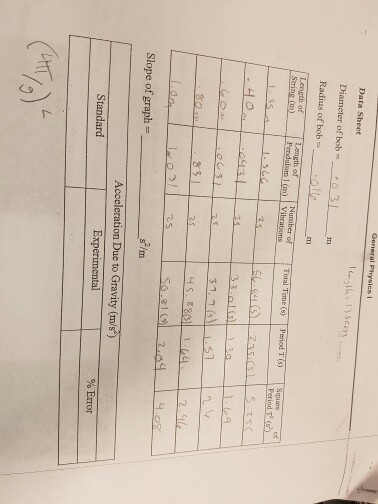 General Physics I
Data Sheet
Diameter of bob = .031 m
Radius of bob = .016 m
Length of String (m) Length of Pendulum l (m) Number of Vibrations Total Time (s) Period T (s) Square of Period T² (s²)
1.35 1.366 25 56.84(s) 5.25
.40m .0431 25 33.0 1.30 1.69
.60m .0631 25 1.57
.80m .831 25 45.88(s) 1.64 2.46
1.0m 1.031 25 50.81(s) 2.04 4.08
Slope of graph = s²/m
Acceleration Due to Gravity (m/s²)
Standard Experimental % Error